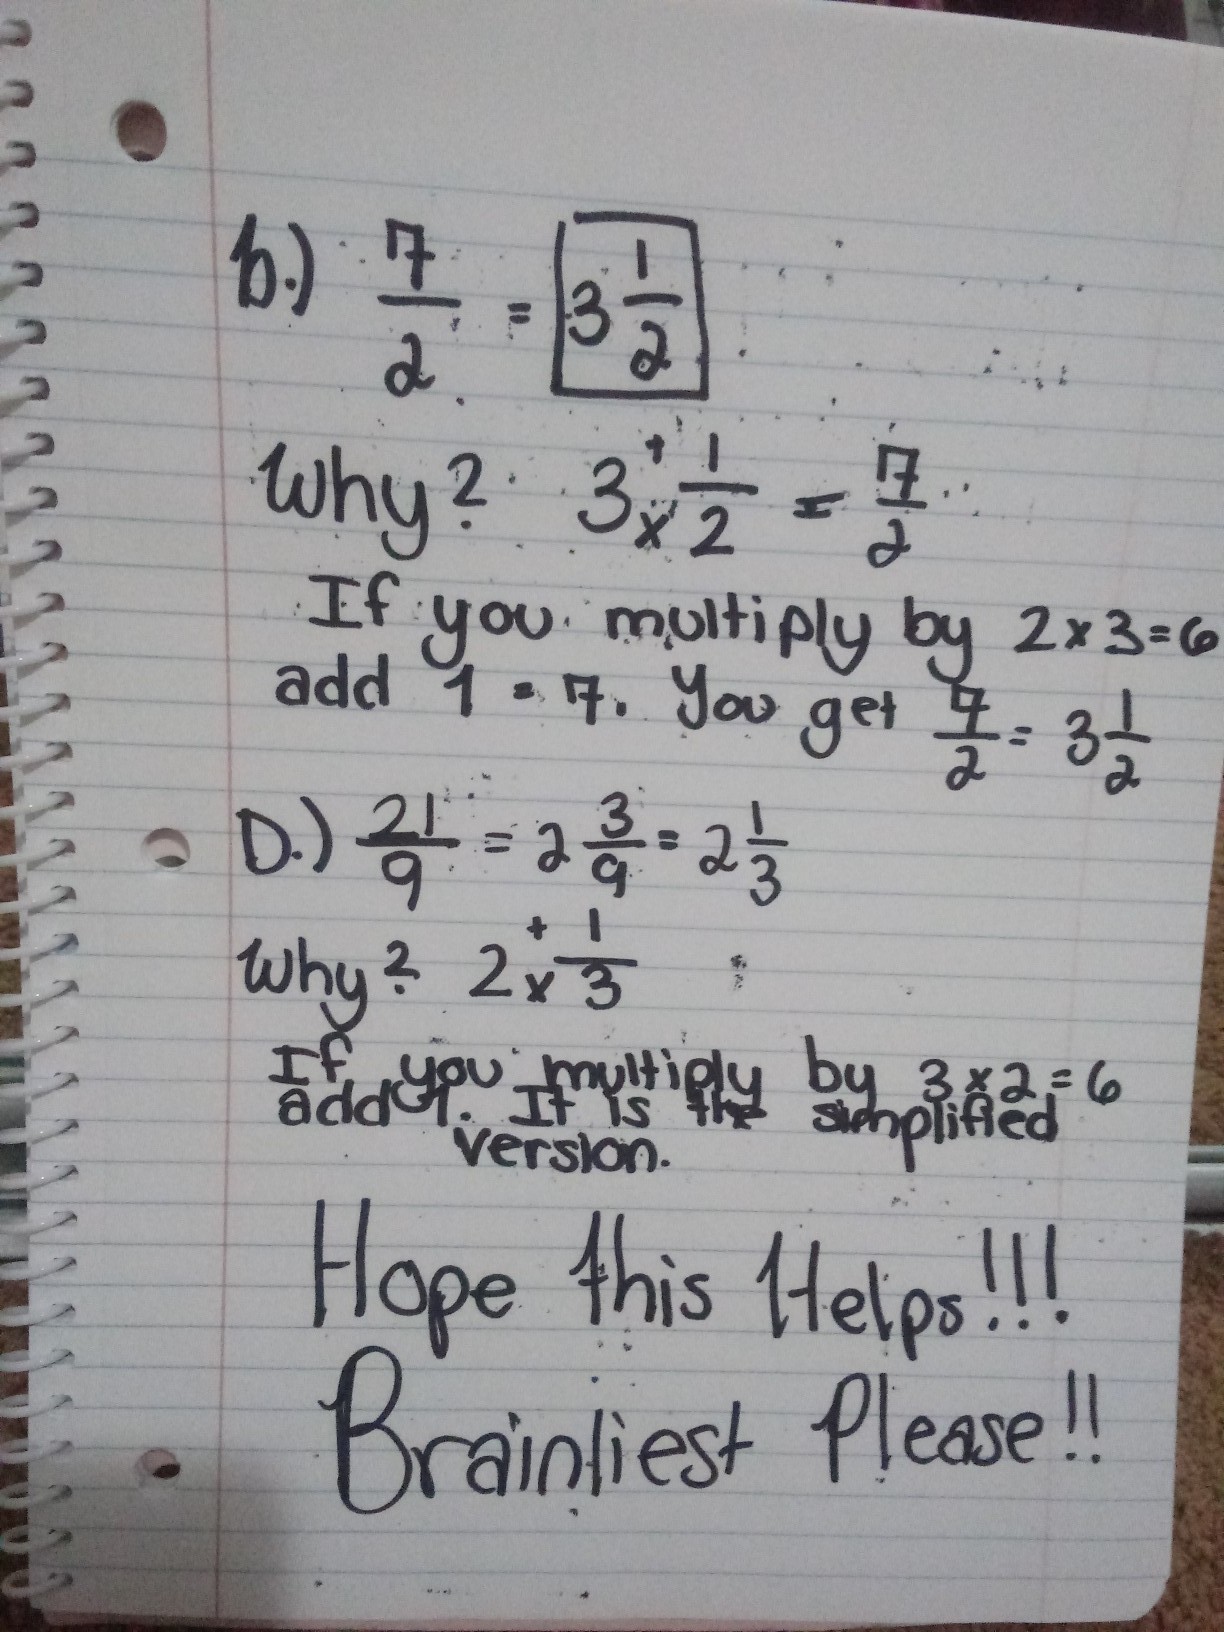 b.) 7/2 = 3 1/2
Why? 3 + x 1/2 = 7/2
If you multiply by 2 x 3 = 6
add 1 = 7. You get 7/2 = 3 1/2
D.) 21/9 = 2 3/9 = 2 1/3
Why? 2 + x 1/3
If you multiply by 3 x 2 = 6
add 1. It is the simplified
version.
Hope this Helps!!!
Brainliest Please!!